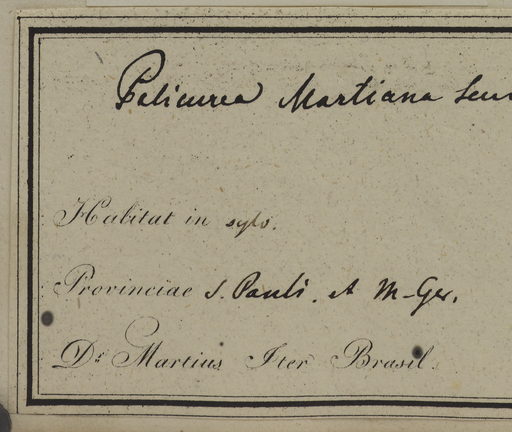 Palicurea Martiana
Habitat in sylv.
Provinciae S. Pauli. et M-Ger.
Dr. Martius Iter Brasil.